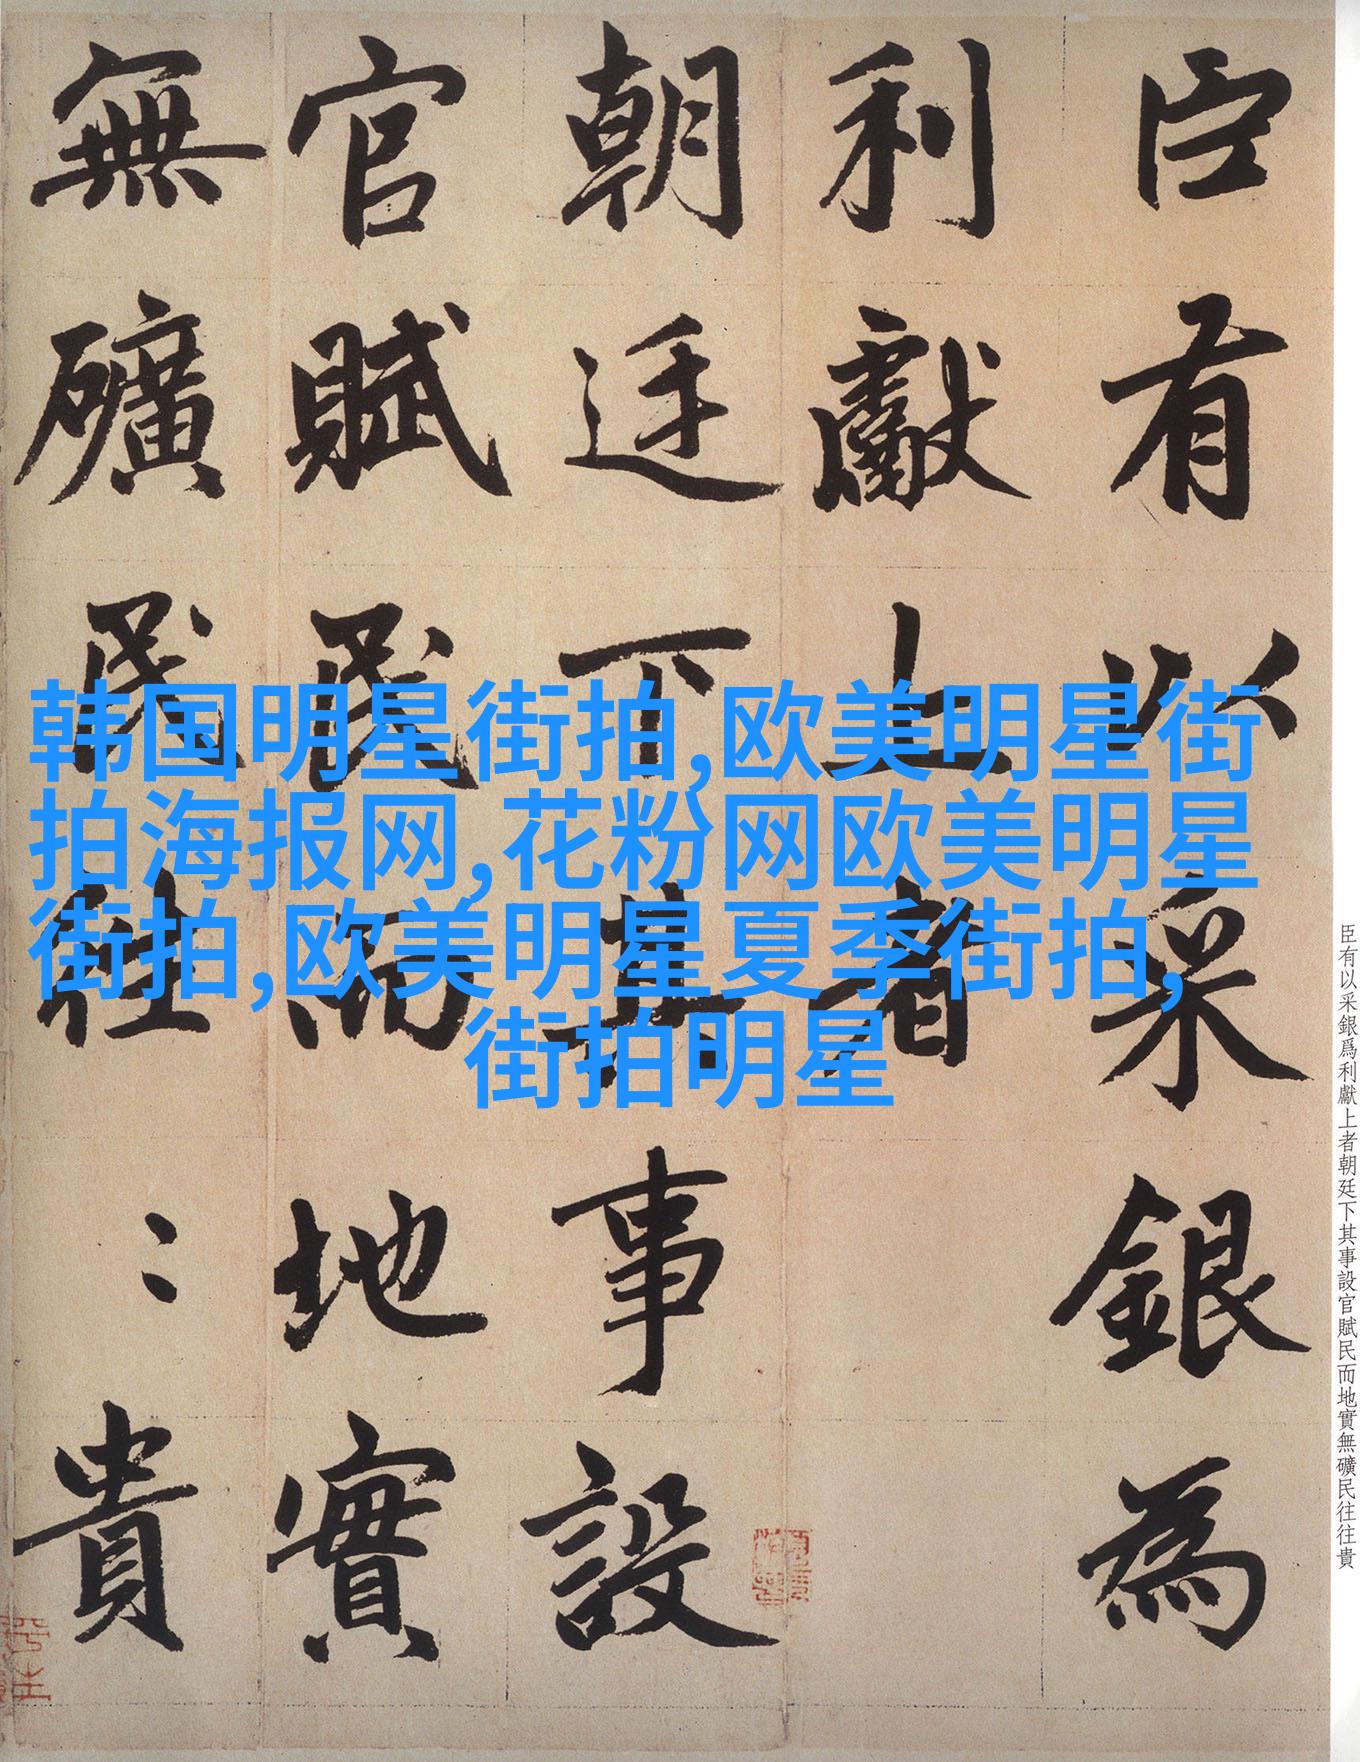 臣有以采銀為
利獻上者
朝廷下其事設
官賦民而地實
無礦民往〻貴
韩国明星街拍,欧美明星街
拍海报网,花粉网欧美明星
街拍,欧美明星夏季街拍,
街拍明星
臣有以采銀爲利獻上者朝廷下其事設官賦民而地實無礦民往往貴